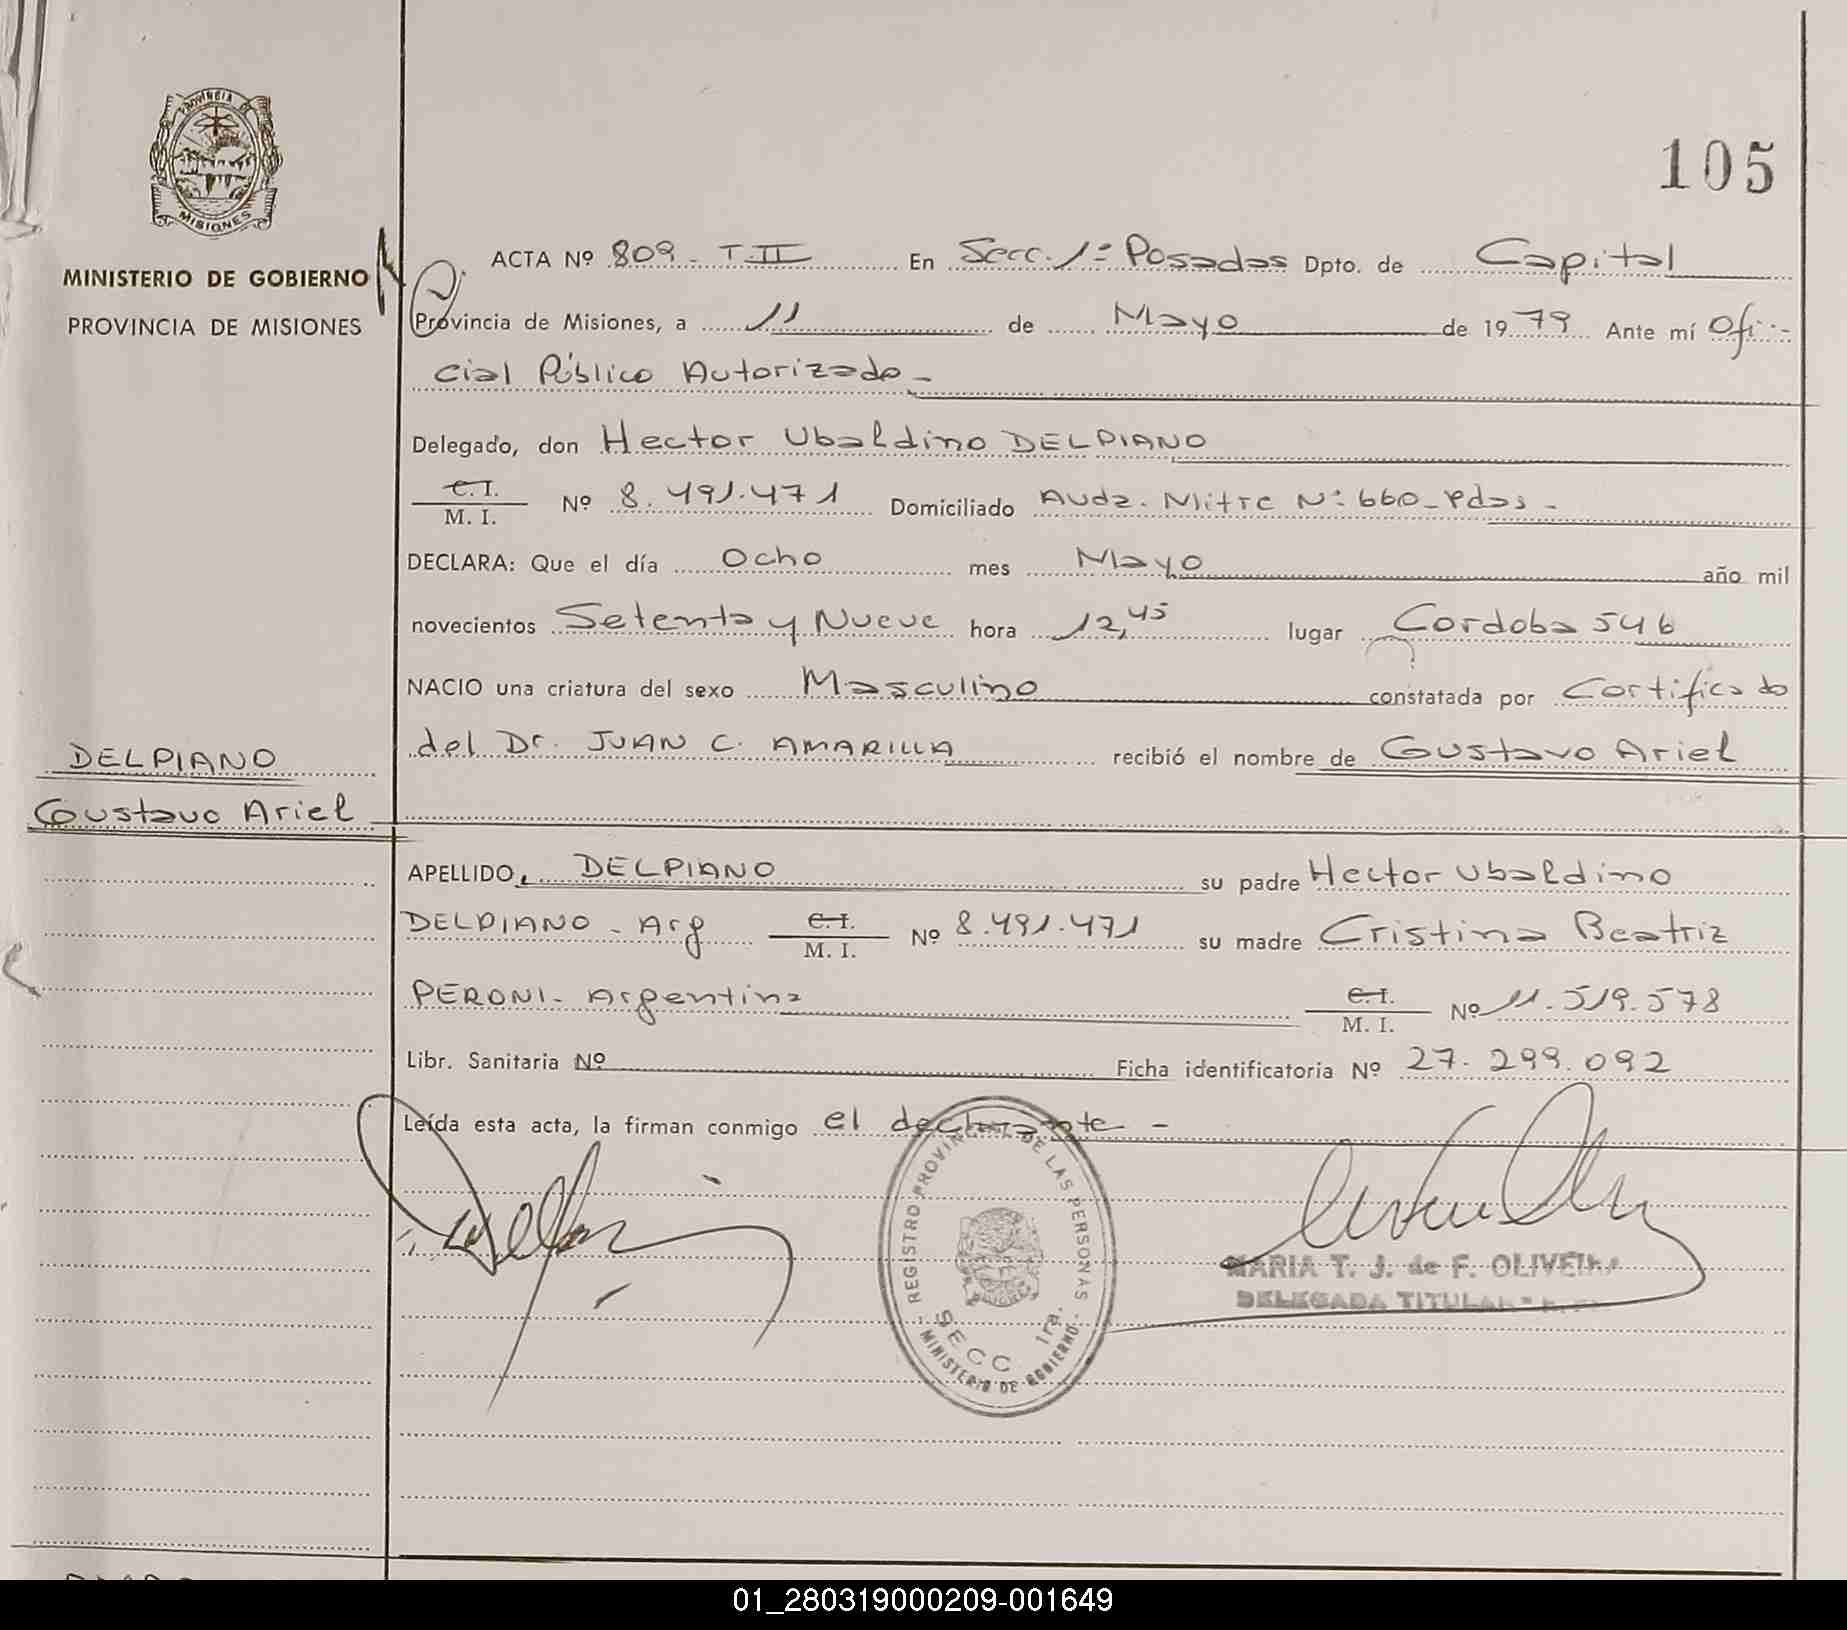 PROVINCIA DE
MISIONES
MINISTERIO DE GOBIERNO
PROVINCIA DE MISIONES
105
ACTA Nº 809 - T. II En Secc. 1ª Posadas Dpto. de Capital
Provincia de Misiones, a 11 de Mayo de 1979 Ante mí Ofi-
cial Público Autorizado -
Delegado, don Hector Ubaldino DELPIANO
C. I.
M. I. Nº 8.491.471 Domiciliado Avda. Mitre Nº 660 - Pdas -
DECLARA: Que el día Ocho mes Mayo año mil
novecientos Setenta y Nueve hora 12,45 lugar Cordoba 546
NACIO una criatura del sexo Masculino constatada por Certificado
del Dr. JUAN C. AMARILLA recibió el nombre de Gustavo Ariel
DELPIANO
Gustavo Ariel
APELLIDO, DELPIANO su padre Hector Ubaldino
DELPIANO - Arg C. I.
M. I. Nº 8.491.471 su madre Cristina Beatriz
PERONI - Argentina C. I.
M. I. Nº 11.519.578
Libr. Sanitaria Nº Ficha identificatoria Nº 27.299.092
Leída esta acta, la firman conmigo el declarante -
REGISTRO PROVINCIAL DE LAS PERSONAS
SECC 1ra.
- MINISTERIO DE GOBIERNO -
MARIA T. J. de F. OLIVEIRA
DELEGADA TITULAR
01_280319000209-001649